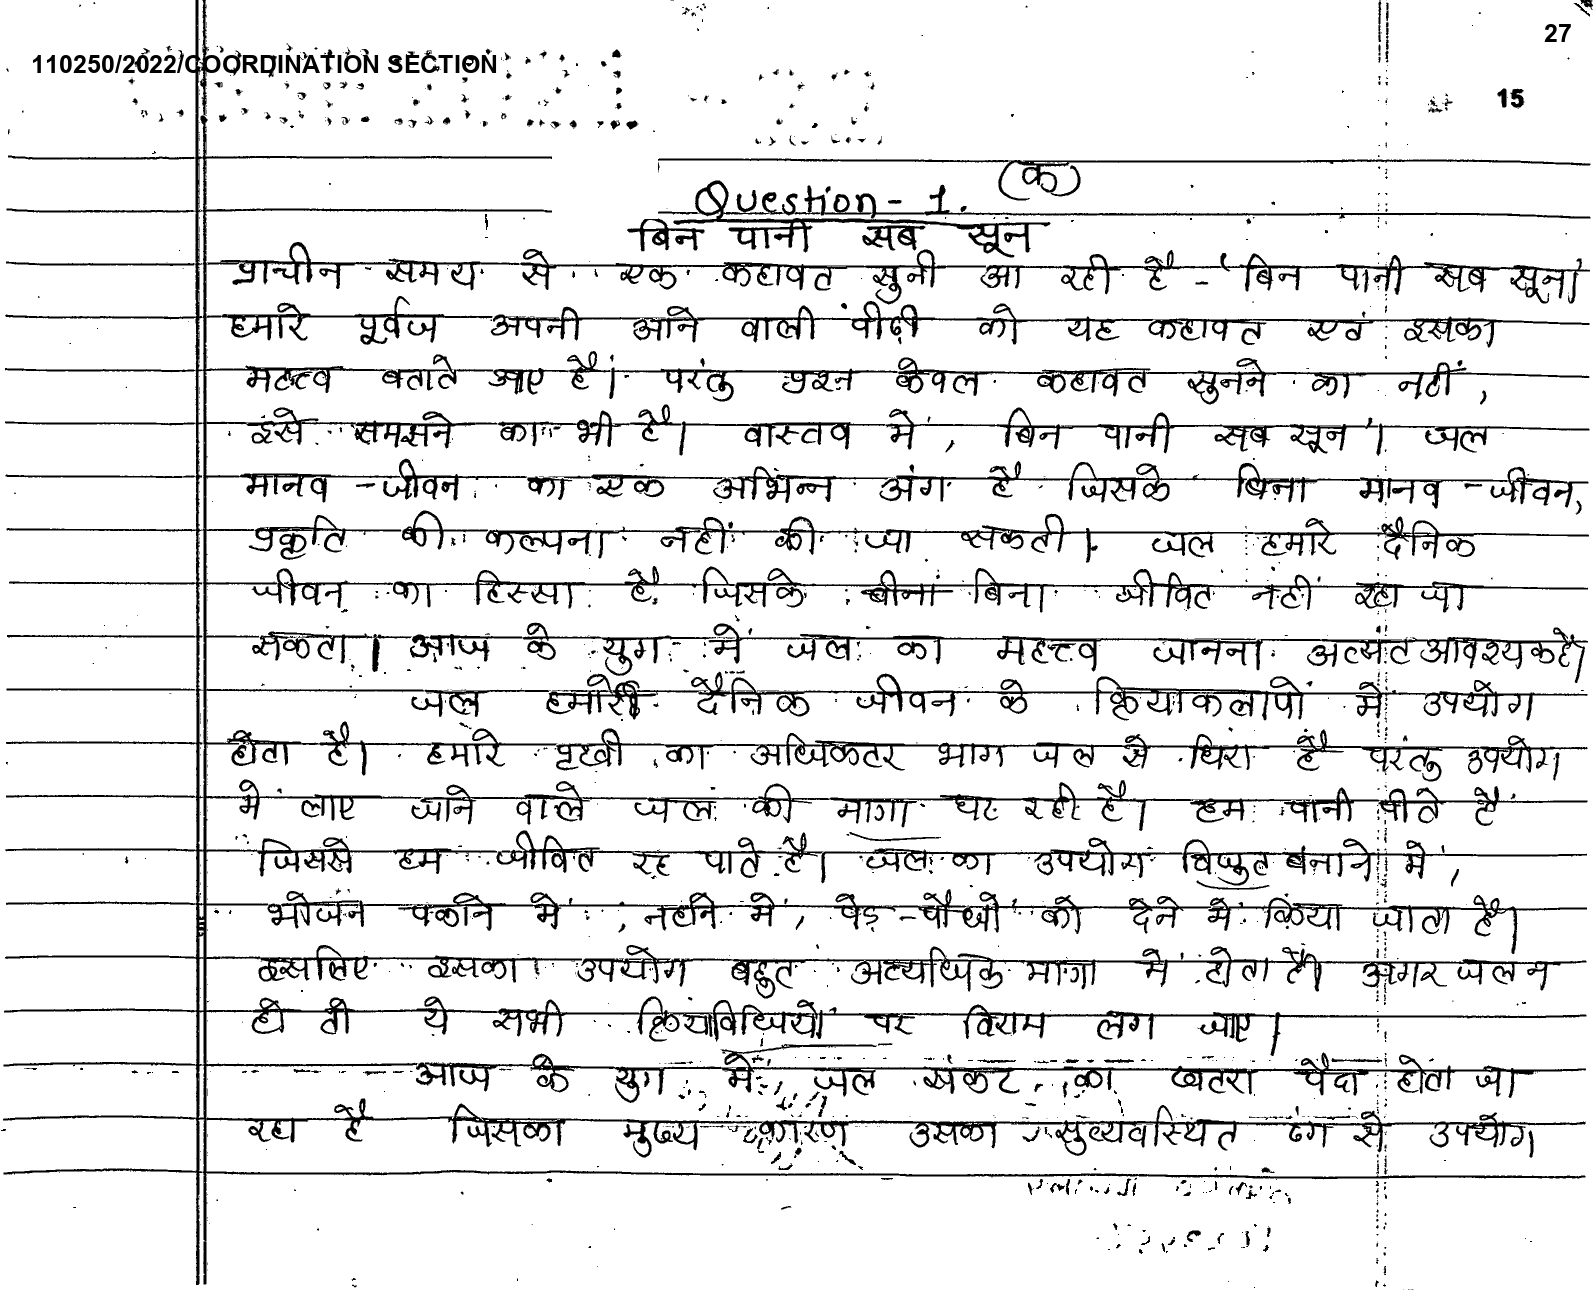 27
110250/2022/COORDINATION SECTION
15
Question - 1. (क)
बिन पानी सब सून
प्राचीन समय से एक कहावत सुनी आ रही है - 'बिन पानी सब सून'
हमारे पूर्वज अपनी आने वाली पीढ़ी को यह कहावत एवं इसका
महत्त्व बताते आए हैं। परंतु प्रश्न केवल कहावत सुनने का नहीं,
इसे समझने का भी है। वास्तव में, बिन पानी सब सून'। जल
मानव - जीवन का एक अभिन्न अंग है जिसके बिना मानव - जीवन,
प्रकृति की कल्पना नहीं की जा सकती। जल हमारे दैनिक
जीवन का हिस्सा है जिसके बिना जीवित नहीं रहा जा
सकता। आज के युग में जल का महत्त्व जानना अत्यंत आवश्यक है।
जल हमारे दैनिक जीवन के क्रियाकलापों में उपयोग
होता है। हमारे पृथ्वी का अधिकतर भाग जल से घिरा है परंतु उपयोग
में लाए जाने वाले जल की मागा घट रही है। हम पानी पीते हैं
जिससे हम जीवित रह पाते है। जल का उपयोग विजुत बनाने में,
भोजन पकाने में, नहाने में, पेड़ - पौधों को देने में किया जाता है।
इसलिए इसका उपयोग बहुत अत्यधिक मागा में होता है। अगर जल न
हो तो ये सभी क्रियाविधियों पर विराम लग जाए।
आज के युग में जल संकट का खतरा पैदा होता जा
रहा है जिसका मुख्य कारण उसका सुव्यवस्थित ढंग से उपयोग